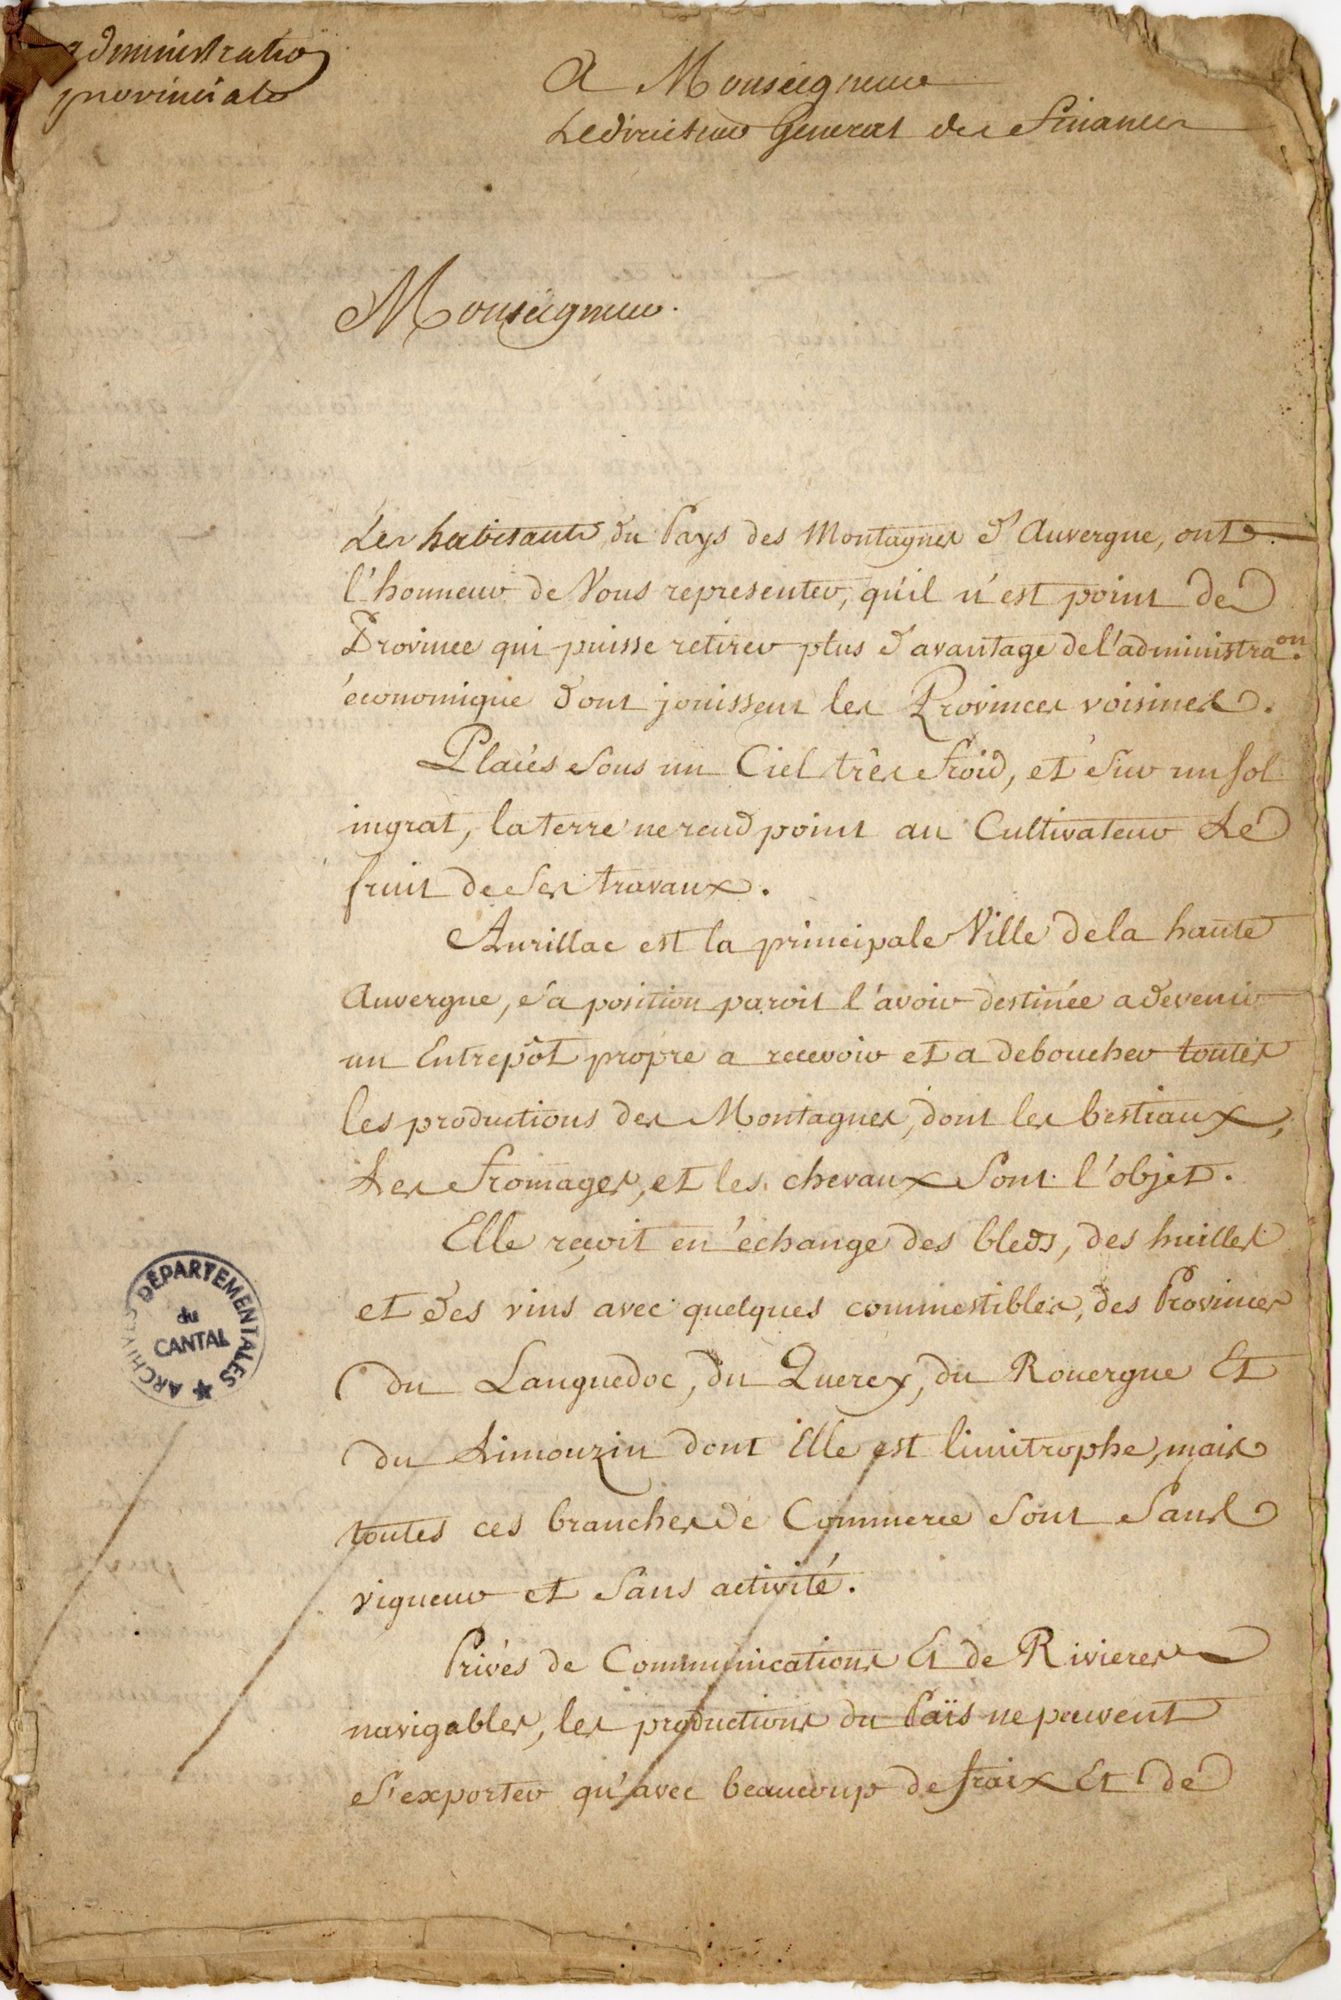 administration
provinciale
A Monseigneur
Le directeur General des Finances
Monseigneur.
Les habitants du Pays des Montagnes d'Auvergne, ont
l'honneur de Vous representer, qu'il n'est point de
Province qui puisse retirer plus d'avantage de l'administraon.
économique dont jouissent les Provinces voisines.
Placés sous un Ciel très froid, et sur un sol
ingrat, la terre ne rend point au Cultivateur Le
fruit de ses travaux.
Aurillac est la principale Ville de la haute
Auvergne, sa position paroit l'avoir destinée a devenir
un Entrepôt propre a recevoir et a deboucher toutes
les productions des Montagnes, dont les bestiaux,
Les fromages, et les chevaux sont l'objet.
Elle reçoit en échange des bleds, des huilles
et des vins avec quelques commestibles, des Provinces
du Languedoc, du Quercy, du Rouergue Et
du Limouzin dont Elle est limitrophe, mais
toutes ces branches de Commerce sont sans
vigueur et sans activité.
Privés de Communications Et de Rivieres
navigables, les productions du Païs ne peuvent
s'exporter qu'avec beaucoup de fraix Et de
ARCHIVES DÉPARTEMENTALES
du
CANTAL